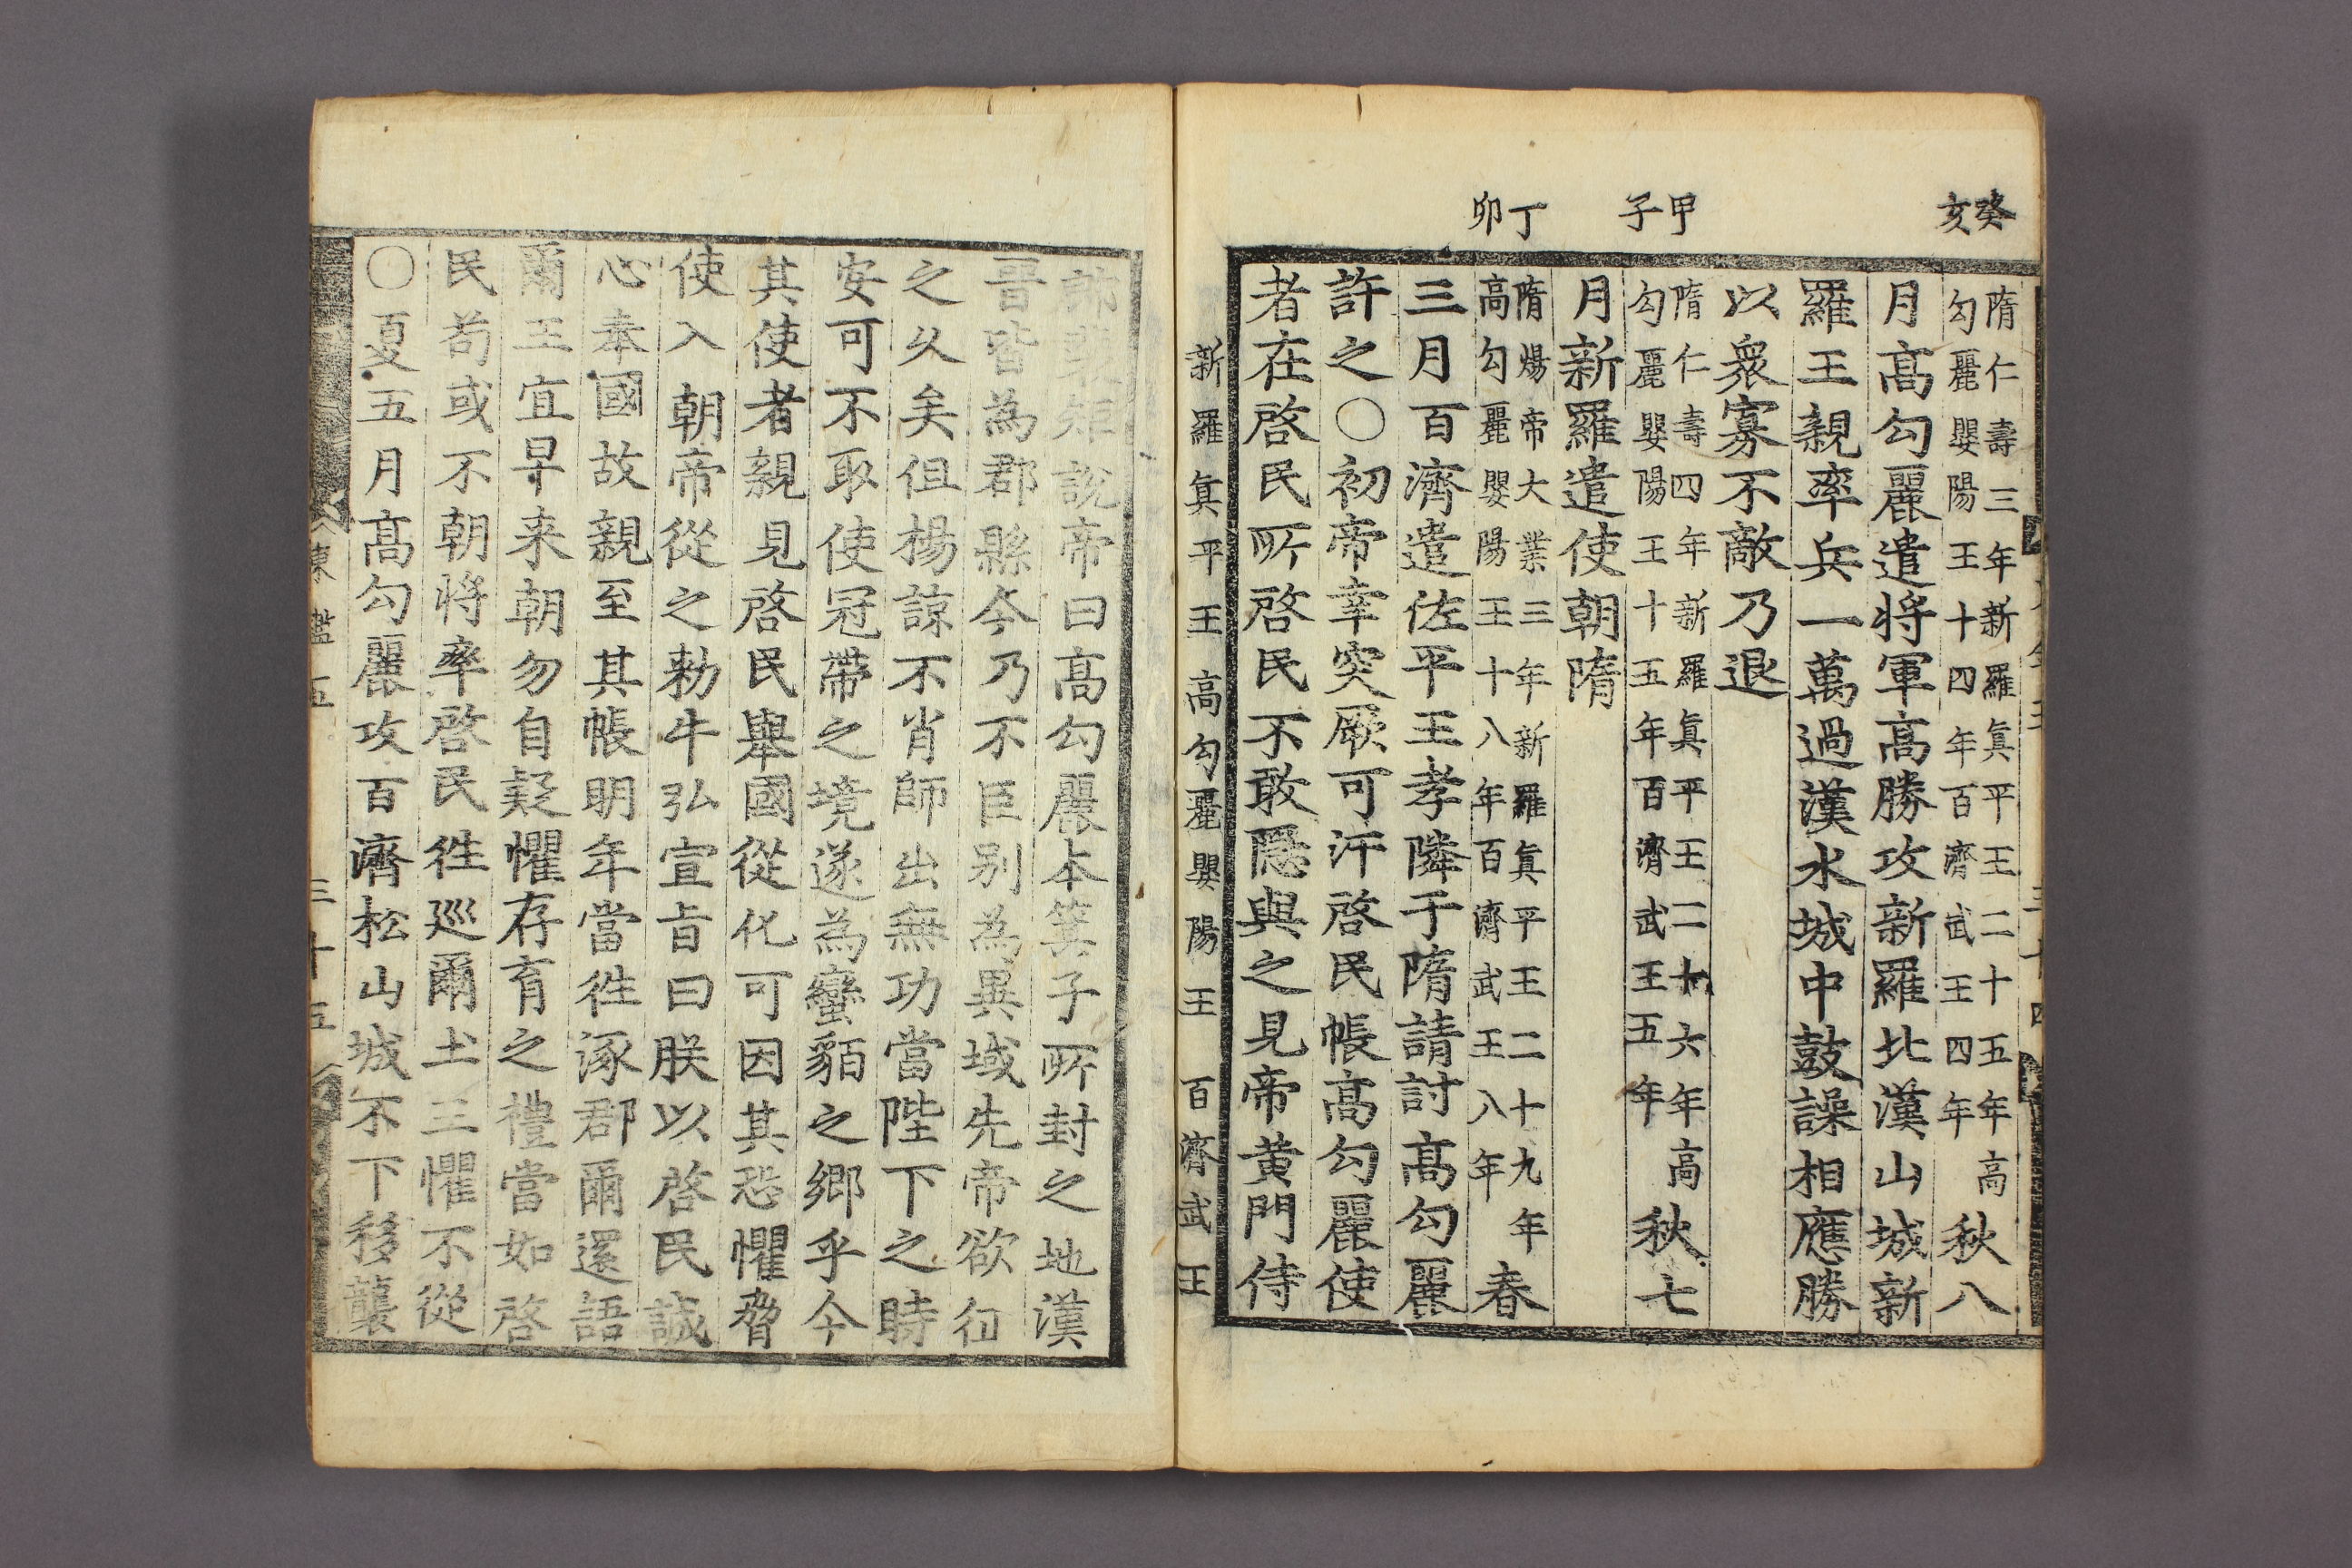 癸亥
甲子
丁卯
隋仁壽三年新羅眞平王二十五年高
勾麗嬰陽王十四年百濟武王四年
秋八
月高勾麗遣將軍高勝攻新羅北漢山城新
羅王親率兵一萬過漢水城中鼓譟相應勝
以衆寡不敵乃退
隋仁壽四年新羅眞平王二十六年高
勾麗嬰陽王十五年百濟武王五年
秋七
月新羅遣使朝隋
隋煬帝大業三年新羅眞平王二十九年
高勾麗嬰陽王十八年百濟武王八年
春
三月百濟遣佐平王孝隣于隋請討高勾麗
許之〇初帝幸突厥可汗啓民帳高勾麗使
者在啓民所啓民不敢隱與之見帝黃門侍
新羅眞平王 高勾麗嬰陽王 百濟武王
矩說帝曰高勾麗本箕子所封之地漢
晋皆為郡縣今乃不臣别為異域先帝欲征
之久矣但楊諒不肖師出無功當陛下之時
安可不取使冠帶之境遂為蠻貊之鄉乎今
其使者親見啓民舉國從化可因其恐懼脅
使入朝帝從之勑牛弘宣旨曰朕以啓民誠
心奉國故親至其帳明年當徃涿郡爾還語
爾王宜早来朝勿自疑懼存育之禮當如啓
民苟或不朝將率啓民徃廵爾土王懼不從
〇夏五月高勾麗攻百濟松山城不下移襲
東
鑑五
三十五